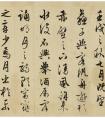 壬戌之秋七月既望
蘇子與客泛舟遊於
赤壁之下清風徐來
水波不興舉酒屬客
誦明月之詩歌窈窕
之章少焉月出於東